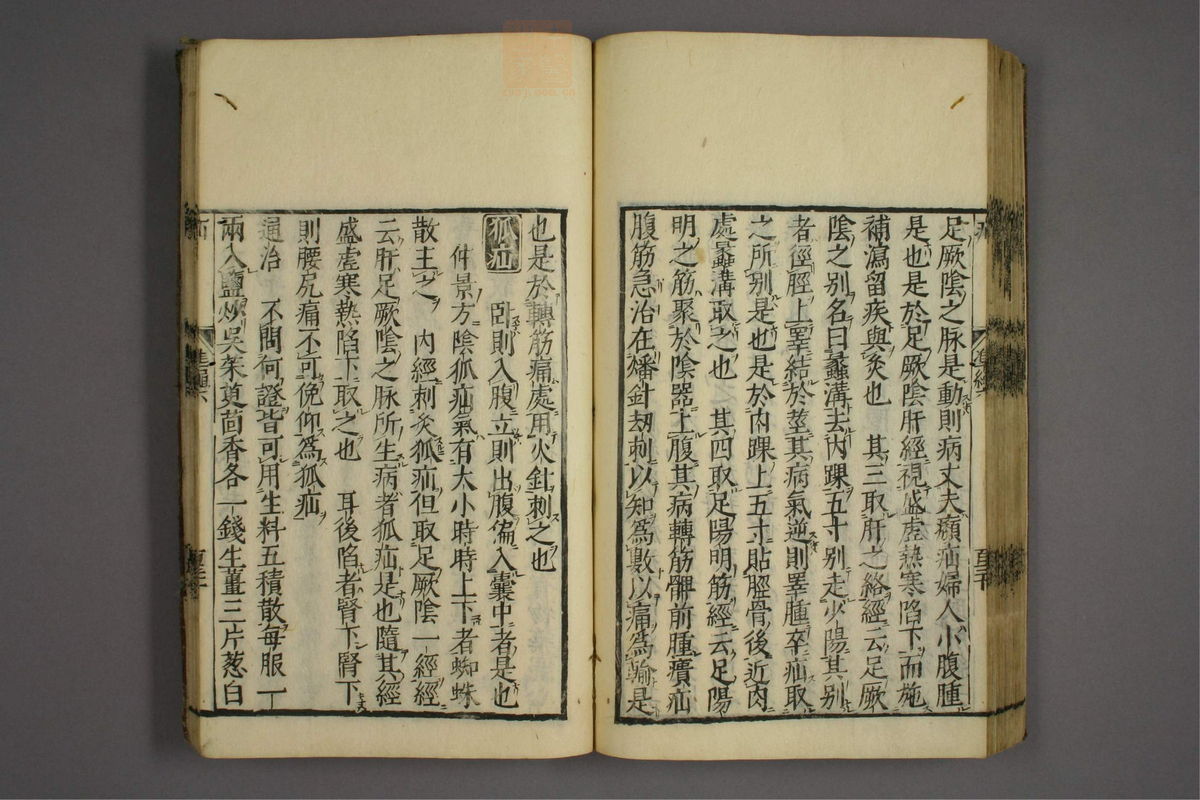 足厥陰之脉是動則病丈夫㿗疝婦人小腹腫
是也是於足厥陰肝經視盛虛熱寒陷下而施
補瀉留疾與灸也　其三取肝之絡經云足厥
陰之別名曰蠡溝去內踝五寸別走少陽其別
者徑脛上睪結於莖其病氣逆則睪腫卒疝取
之所別是也是於內踝上五寸貼脛骨後近肉
處蠡溝取之也　其四取足陽明筋經云足陽
明之筋聚於陰器上腹其病轉筋髀前腫㿉疝
腹筋急治在燔針劫刺以知爲數以痛爲輸是
也是於轉筋痛處用火針刺之也
狐疝　臥則入腹立則出腹偏入囊中者是也
仲景方陰狐疝氣有大小時時上下者蜘蛛
散主之　內經刺灸狐疝但取足厥陰一經經
云肝足厥陰之脉所生病者狐疝是也隨其經
盛虛寒熱陷下取之也　耳後陷者腎下腎下
則腰尻痛不可俛仰爲狐疝
通治　不問何證皆可用生料五積散每服一
兩入鹽炒吳茱萸茴香各一錢生薑三片蔥白